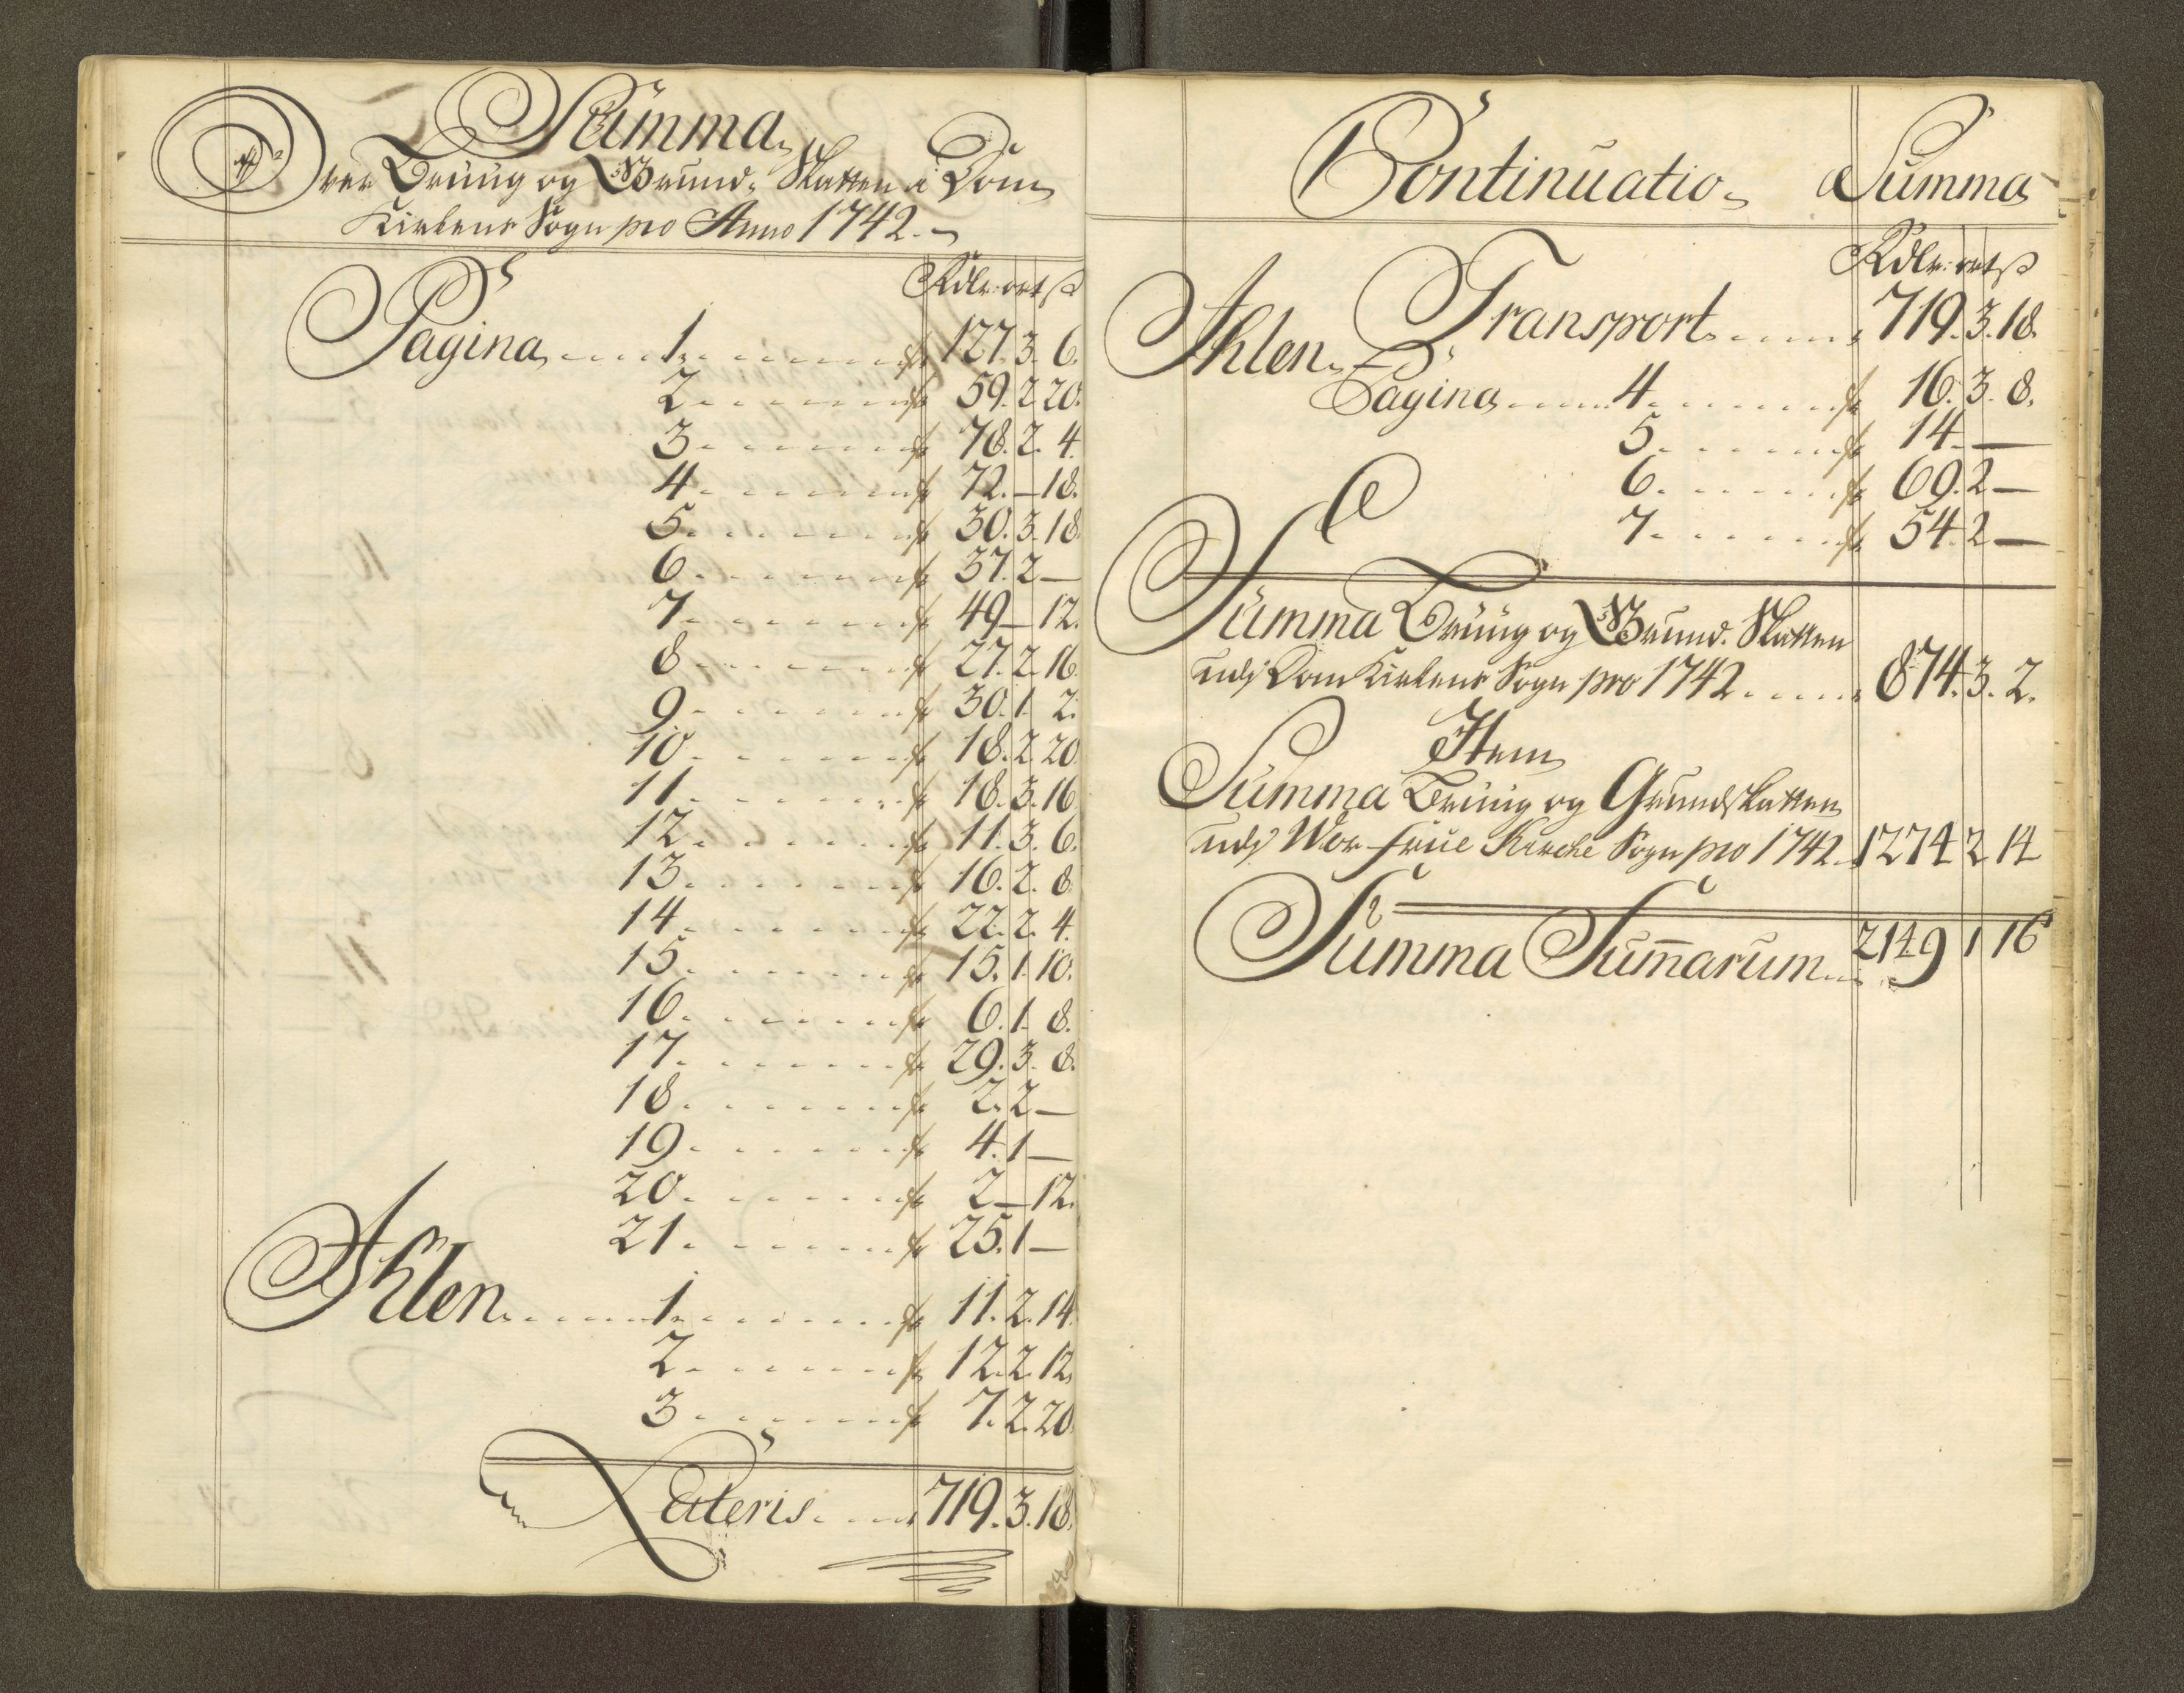 Summa
Over Bruug og Grund-Skatten i Dom
Kirkens Sogn pro Anno 1742.
Rdlr. ort ß
Pagina 1. 127. 3. 6.
2. 59. 2 20.
3. 78. 2. 4.
4. 72. — 18.
5. 30. 3. 18.
6. 37. 2 —
7. 49 — 12.
8. 27. 2. 16.
9. 30. 1. 2.
10. 18. 2. 20.
11. 18. 3. 16
12. 11. 3. 6.
13. 16. 2. 8.
14. 22. 2. 4.
15. 15. 1. 10.
16. 6. 1. 8.
17. 29. 3. 8.
18. 2. 2 —
19. 4. 1 —
20. 2 — 12.
21. 25. 1 —
Ihlen 1. 11. 2. 14.
2. 12. 2. 12.
3. 7. 2. 20.
Lateris 719. 3. 18.
Continuatio Summa
Rdlr. ort ß
Transport 719. 3. 18.
Ihlen
Pagina 4. 16. 3. 8.
5. 14. —
6. 69. 2 —
7. 54. 2 —
Summa Bruug og Grund-Skatten
udj Dom Kirkens Sogn pro 1742. 874. 3. 2.
Item
Summa Bruug og Grundskatten
udj Wor Frue Kirche Sogn pro 1742. 1274 2 14
Summa Sum̅arum 2149 1 16